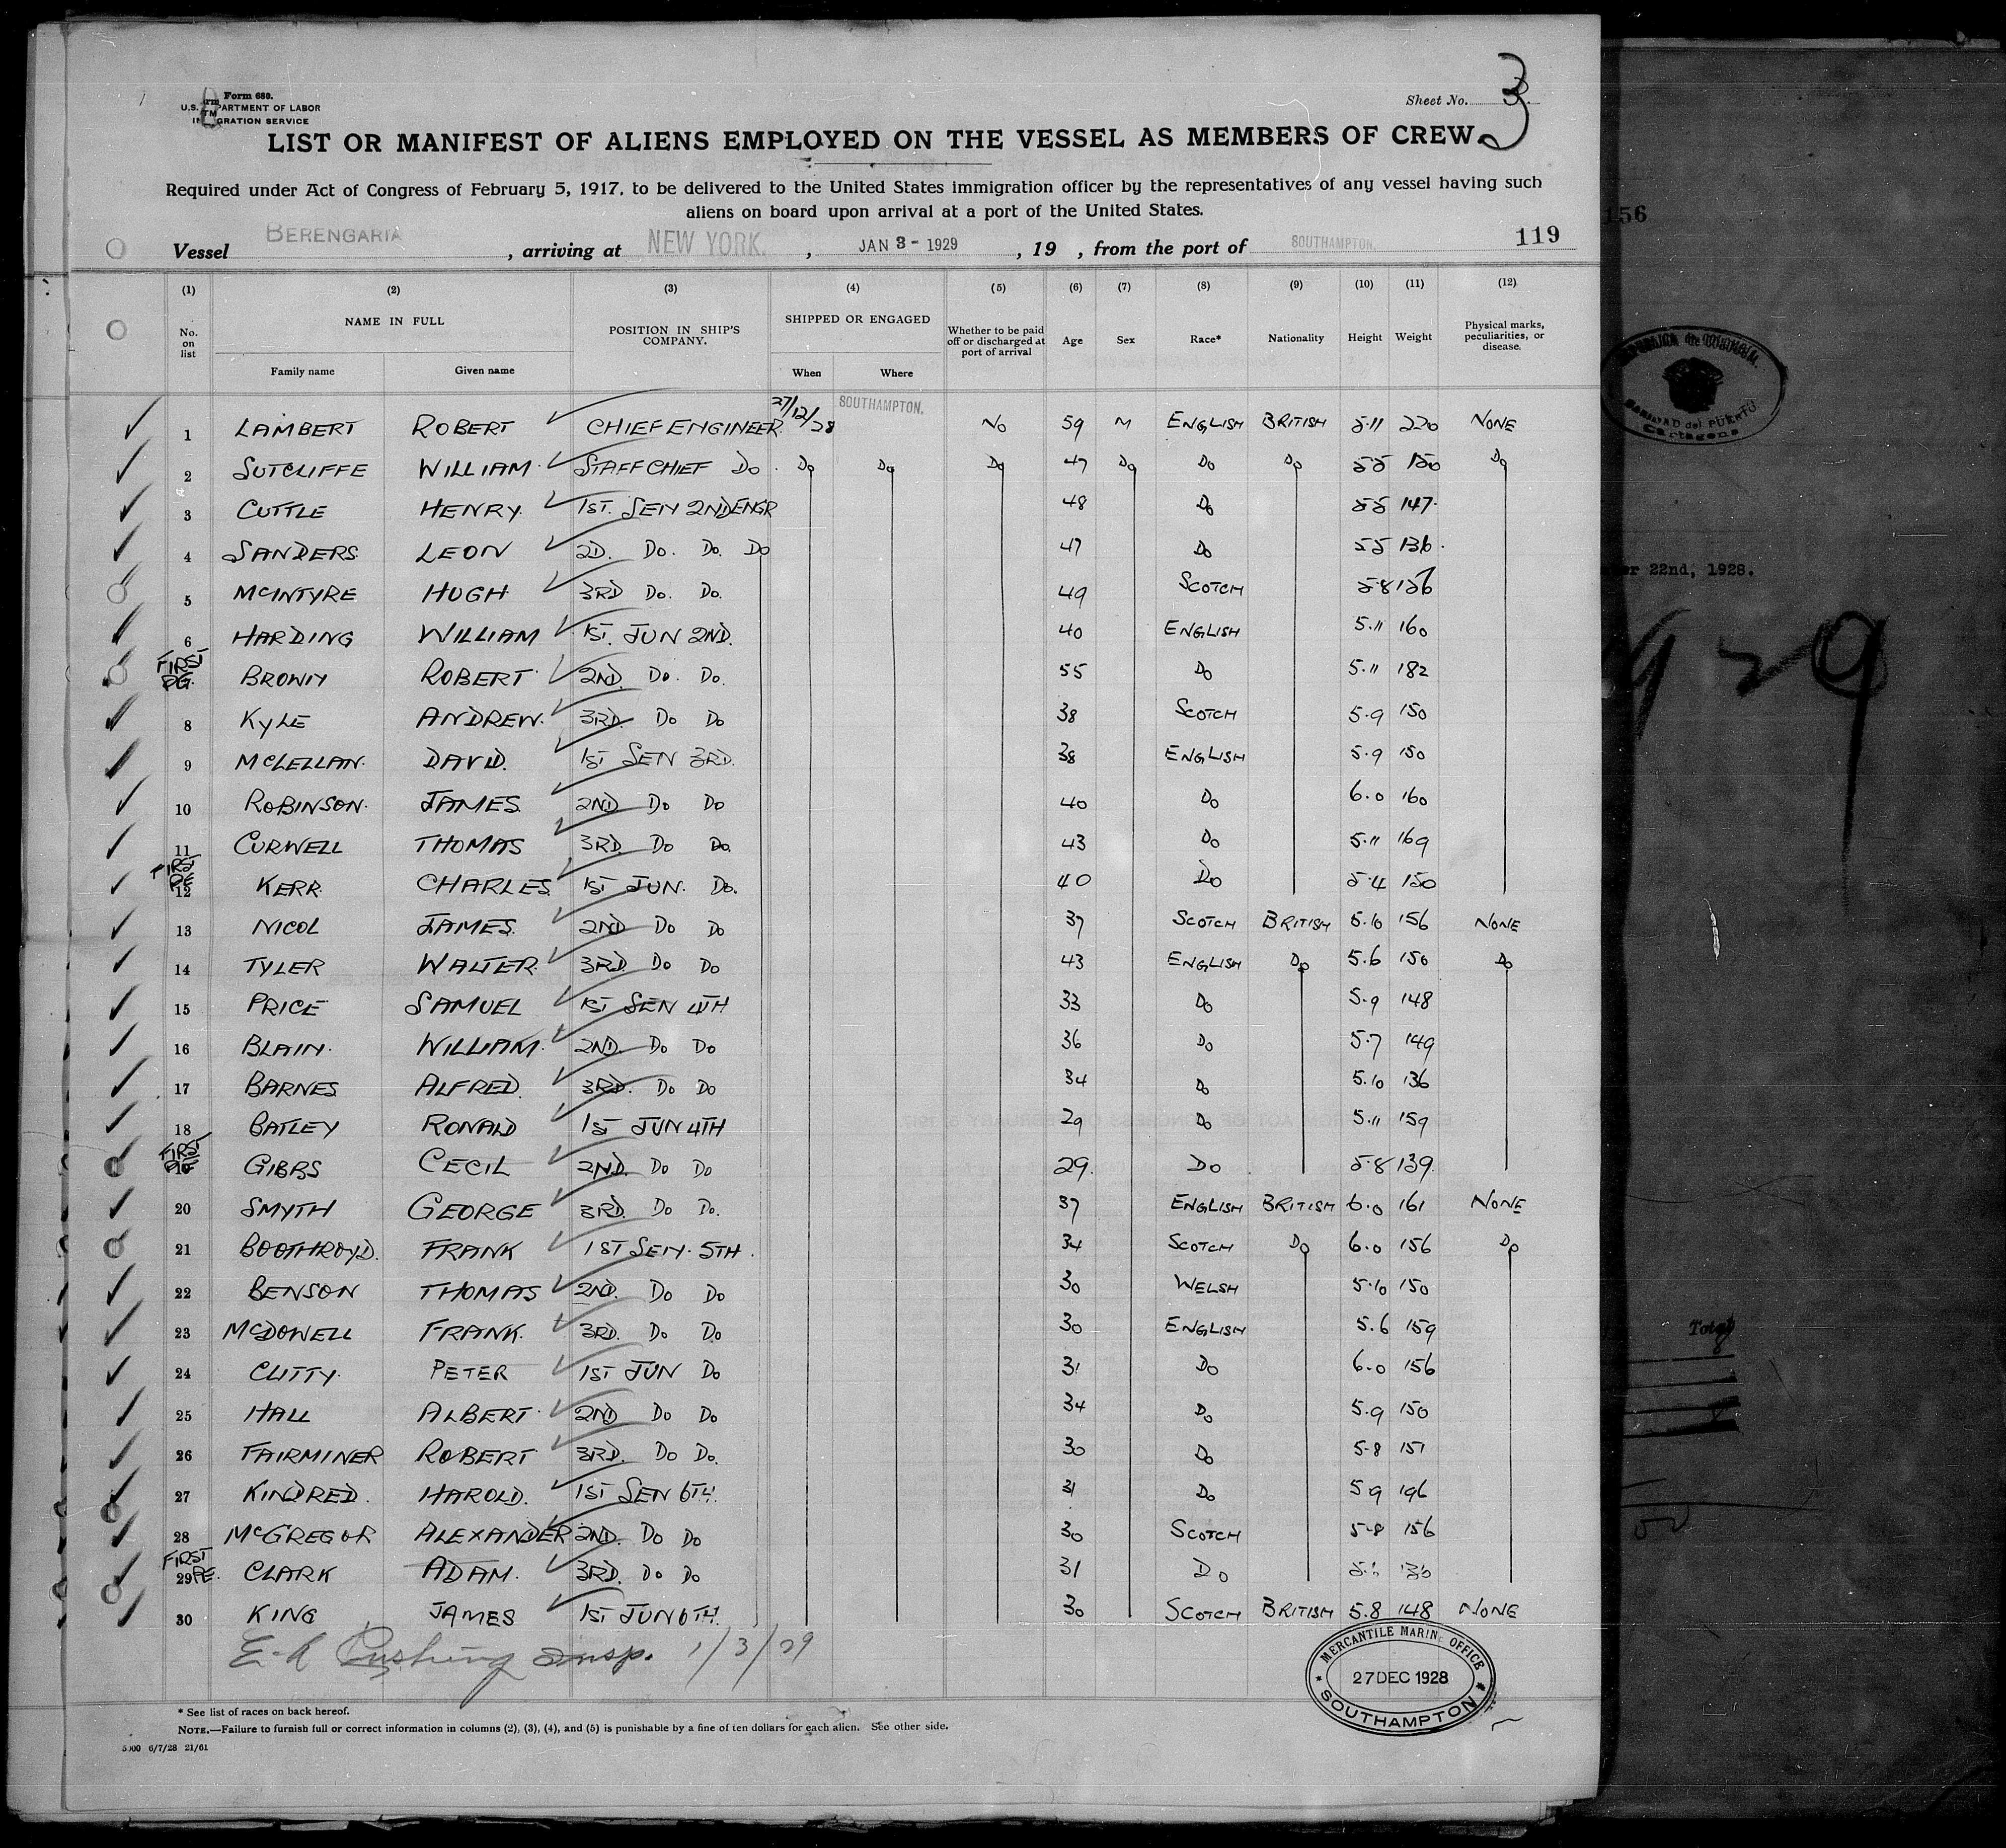 Form 680.
U.S. DEPARTMENT OF LABOR
IMMIGRATION SERVICE
Sheet No. 3
LIST OR MANIFEST OF ALIENS EMPLOYED ON THE VESSEL AS MEMBERS OF CREW
Required under Act of Congress of February 5, 1917, to be delivered to the United States immigration officer by the representatives of any vessel having such
aliens on board upon arrival at a port of the United States.
Vessel BERENGARIA, arriving at NEW YORK., JAN 3 - 1929, 19 , from the port of SOUTHAMPTON. 119
(1) (2) (3) (4) (5) (6) (7) (8) (9) (10) (11) (12)
No. on list NAME IN FULL POSITION IN SHIP'S COMPANY. SHIPPED OR ENGAGED Whether to be paid off or discharged at port of arrival Age Sex Race* Nationality Height Weight Physical marks, peculiarities, or disease.
Family name Given name When Where
1 LAMBERT ROBERT CHIEF ENGINEER 27/12/28 SOUTHAMPTON. NO 59 M ENGLISH BRITISH 5·11 220 NONE
2 SUTCLIFFE WILLIAM STAFF CHIEF DO. DO DO DO 47 DO DO DO 55 150 DO
3 CUTTLE HENRY 1ST. SEN 2ND ENGR 48 DO 55 147
4 SANDERS LEON 2D. DO. DO. DO 47 DO 55 136
5 MCINTYRE HUGH 3RD DO. DO. 49 SCOTCH 5·8 156
6 HARDING WILLIAM 1ST. JUN 2ND. 40 ENGLISH 5.11 160
FIRST PG. BROWN ROBERT 2ND. DO. DO. 55 DO 5.11 182
8 KYLE ANDREW. 3RD DO DO 38 SCOTCH 5.9 150
9 MCLELLAN. DAVID. 1ST SEN 3RD. 38 ENGLISH 5.9 150
10 ROBINSON. JAMES 2ND DO DO 40 DO 6.0 160
11 CURWELL THOMAS 3RD. DO DO. 43 DO 5.11 169
FIRST PE 12 KERR CHARLES 1ST JUN. DO. 40 DO 5·4 150
13 NICOL JAMES. 2ND DO DO 37 SCOTCH BRITISH 5.10 156 NONE
14 TYLER WALTER. 3RD. DO DO 43 ENGLISH DO 5.6 150 DO
15 PRICE SAMUEL 1ST SEN 4TH 33 DO 5.9 148
16 BLAIN. WILLIAM. 2ND. DO DO 36 DO 5.7 149
17 BARNES ALFRED. 3RD. DO DO 34 DO 5.10 136
18 BATLEY RONALD 1ST JUN 4TH 29 DO 5.11 159
FIRST PE 19 GIBBS CECIL 2ND. DO DO 29. DO 5·8 139.
20 SMYTH GEORGE 3RD. DO DO. 37 ENGLISH BRITISH 6.0 161 NONE
21 BOOTHROYD. FRANK 1ST SEN. 5TH. 34 SCOTCH DO 6.0 156 DO
22 BENSON THOMAS 2ND. DO DO 30 WELSH 5.10 150
23 MCDOWELL FRANK. 3RD. DO DO 30 ENGLISH 5.6 159
24 CLITTY. PETER 1ST JUN DO 31 DO 6.0 156
25 HALL ALBERT. 2ND DO DO 34 DO 5.9 150
26 FAIRMINER ROBERT 3RD. DO DO. 30 DO 5·8 151
27 KINDRED. HAROLD. 1ST SEN 6TH. 31 DO 5·9 196
28 MCGREGOR ALEXANDER 2ND. DO DO 30 SCOTCH 5·8 156
FIRST 29 PE. CLARK ADAM. 3RD. DO DO 31 DO
30 KING JAMES 1ST JUN 6TH. 30 SCOTCH BRITISH 5.8 148 NONE
Cushing Insp. 1/3/29
MERCANTILE MARINE OFFICE
27 DEC 1928
SOUTHAMPTON
* See list of races on back hereof.
NOTE.—Failure to furnish full or correct information in columns (2), (3), (4), and (5) is punishable by a fine of ten dollars for each alien. See other side.
5000 6/7/28 21/61
156
del PUERTO
Cartagena
22nd, 1928.
929
Total